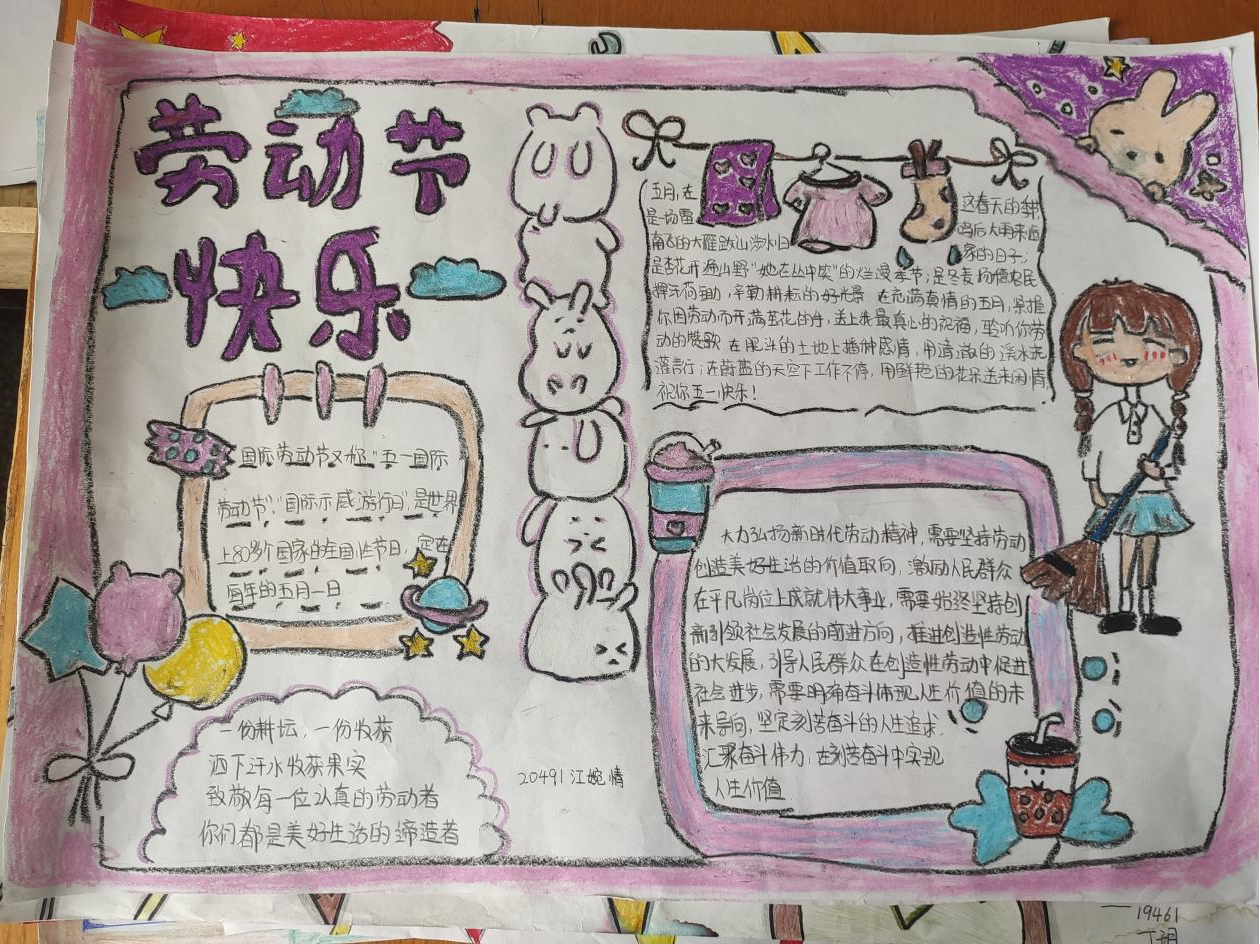 劳动节
快乐
国际劳动节又称"五一国际
劳动节""国际示威游行日",是世界
上80多个国家的全国性节日,定在
每年的五月一日
一份耕坛,一份收获
洒下汗水收获果实
致敬每一位认真的劳动者
你们都是美好生活的缔造者
20491 江婉情
五月,在 这春天的
是一场雷 鸣后大雨来临
南飞的大雁 山 水归 家的日子;
是杏花开遍山野"她在丛中笑"的烂漫季节;是冬麦扬穗农民
辛勤耕耘的好光景 在充满真情的五月,
你因劳动而开满茧花的手,送上我最真心的祝福,聆听你劳
动的赞歌 在肥 的土地上播种感情,用清澈的溪水
言行;在蔚蓝的天空下工作不停,用鲜艳的花朵送来闲情,
祝你五一快乐!
大力弘扬新时代劳动精神,需要坚持劳动
创造美好生活的价值取向,激励人民群众
在平凡岗位上成就伟大事业,需要始终坚持创
新引领社会发展的前进方向,推进创造性劳动
的大发展,引导人民群众在创造性劳动中促进
社会进步,需要明确奋斗体现人生价值的未
来导向,坚定刻苦奋斗的人生追求,
汇聚奋斗伟力,在刻苦奋斗中实现
人生价值
19461